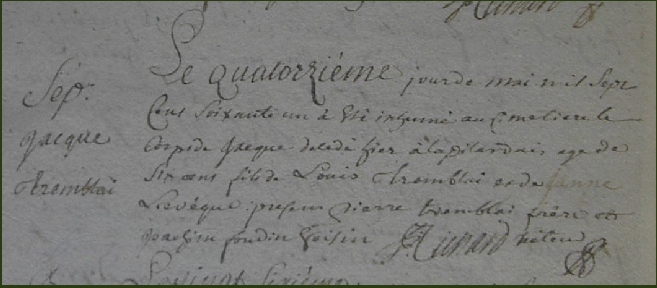 Sép.r
Jacque
tremblai
Le quatorziéme jour de mai mil Sept
Cens Soixante un a été inhumé au cimetiere le
Corps de Jacque decedé hier à la age de
Six ans fils de Louis tremblai et de Janne
Levéque presens Pierre tremblai frère et
Joachim voisin